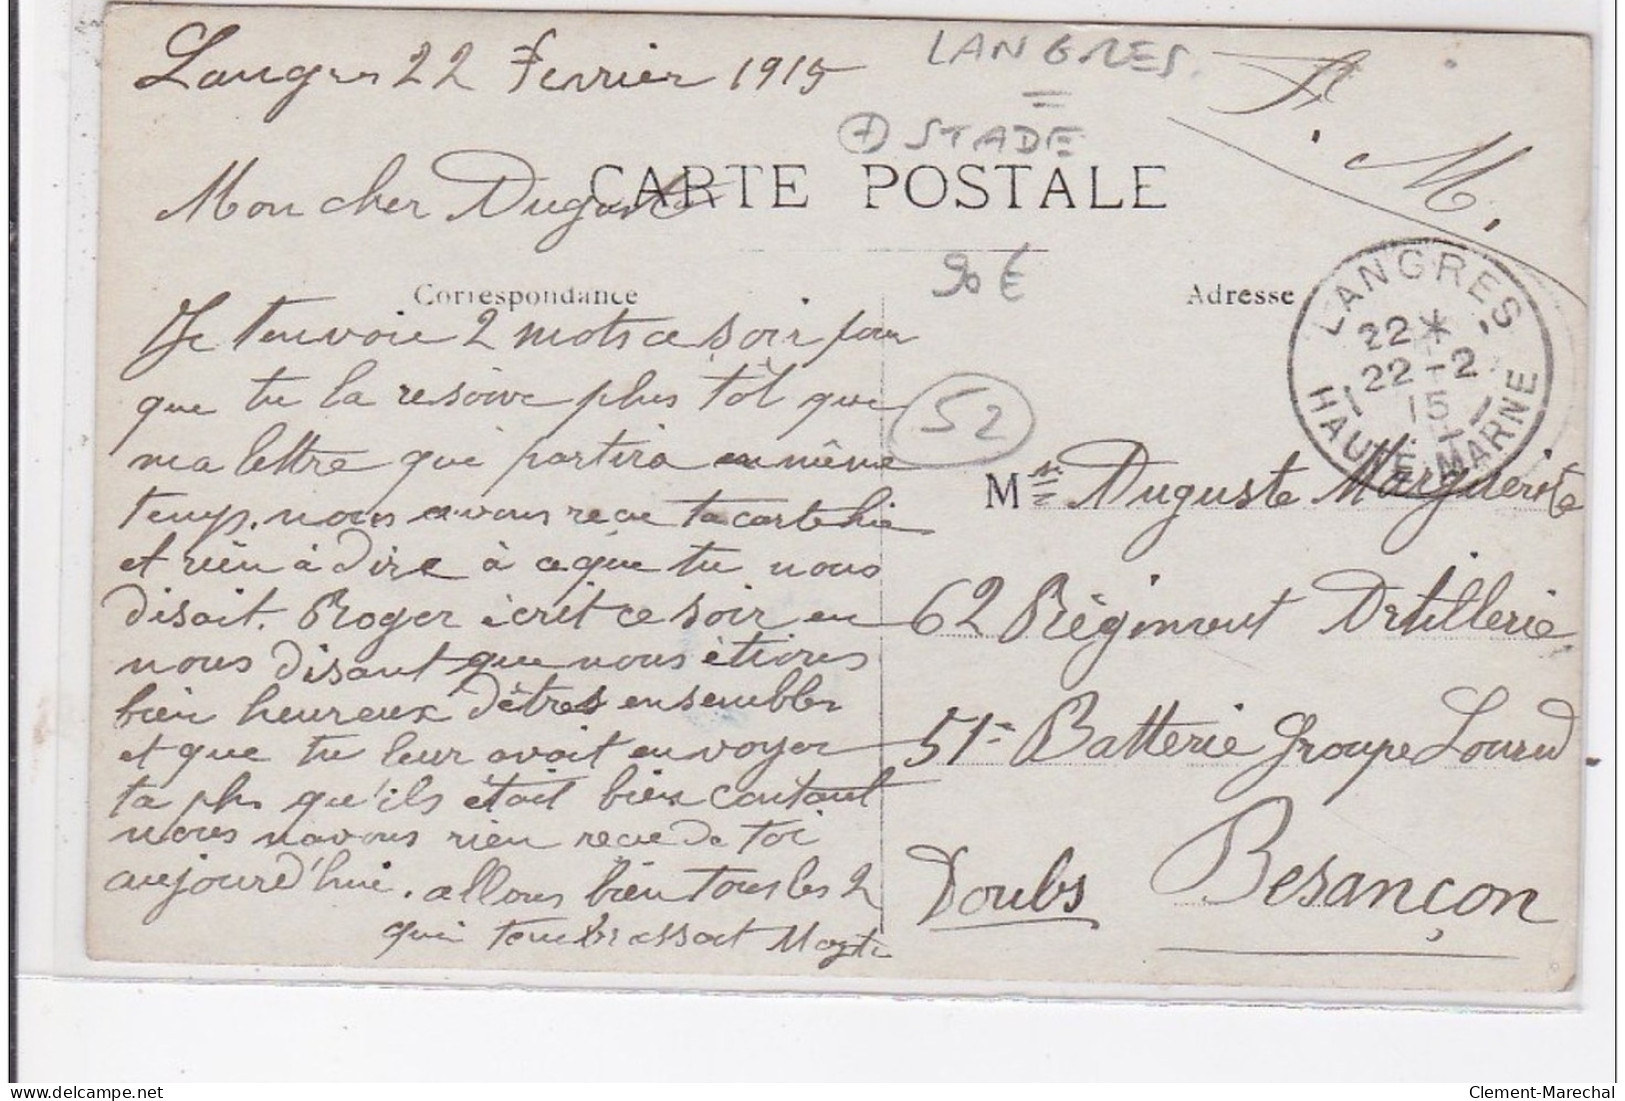 Langres 22 Fevrier 1915
LANGRES
=
+ STADE
F. M.
CARTE POSTALE
Mon cher Auguste
90 €
Correspondance
Adresse
LANGRES
22 *
22 - 2
15
HAUTE-MARNE
Je tenvoie 2 mots ce soir pour
que tu la resoive plus tôt que
ma lettre qui partira en même
temps. nous avons recue ta carte hier
et rien à dire à ce que tu nous
disait. Roger écrit ce soir en
nous disant que nous étions
bien heureux dêtres ensembles
et que tu leur avait envoyer
ta pho qu'ils était bien contant
nous navons rien recue de toi
aujourd'hui. allons bien tous les 2
qui tembrassoit Magte
52
Mr Auguste Marguerite
62 Régiment Artillerie
51e Batterie Groupe Lourd
Besançon
Doubs
Clement-Marechal